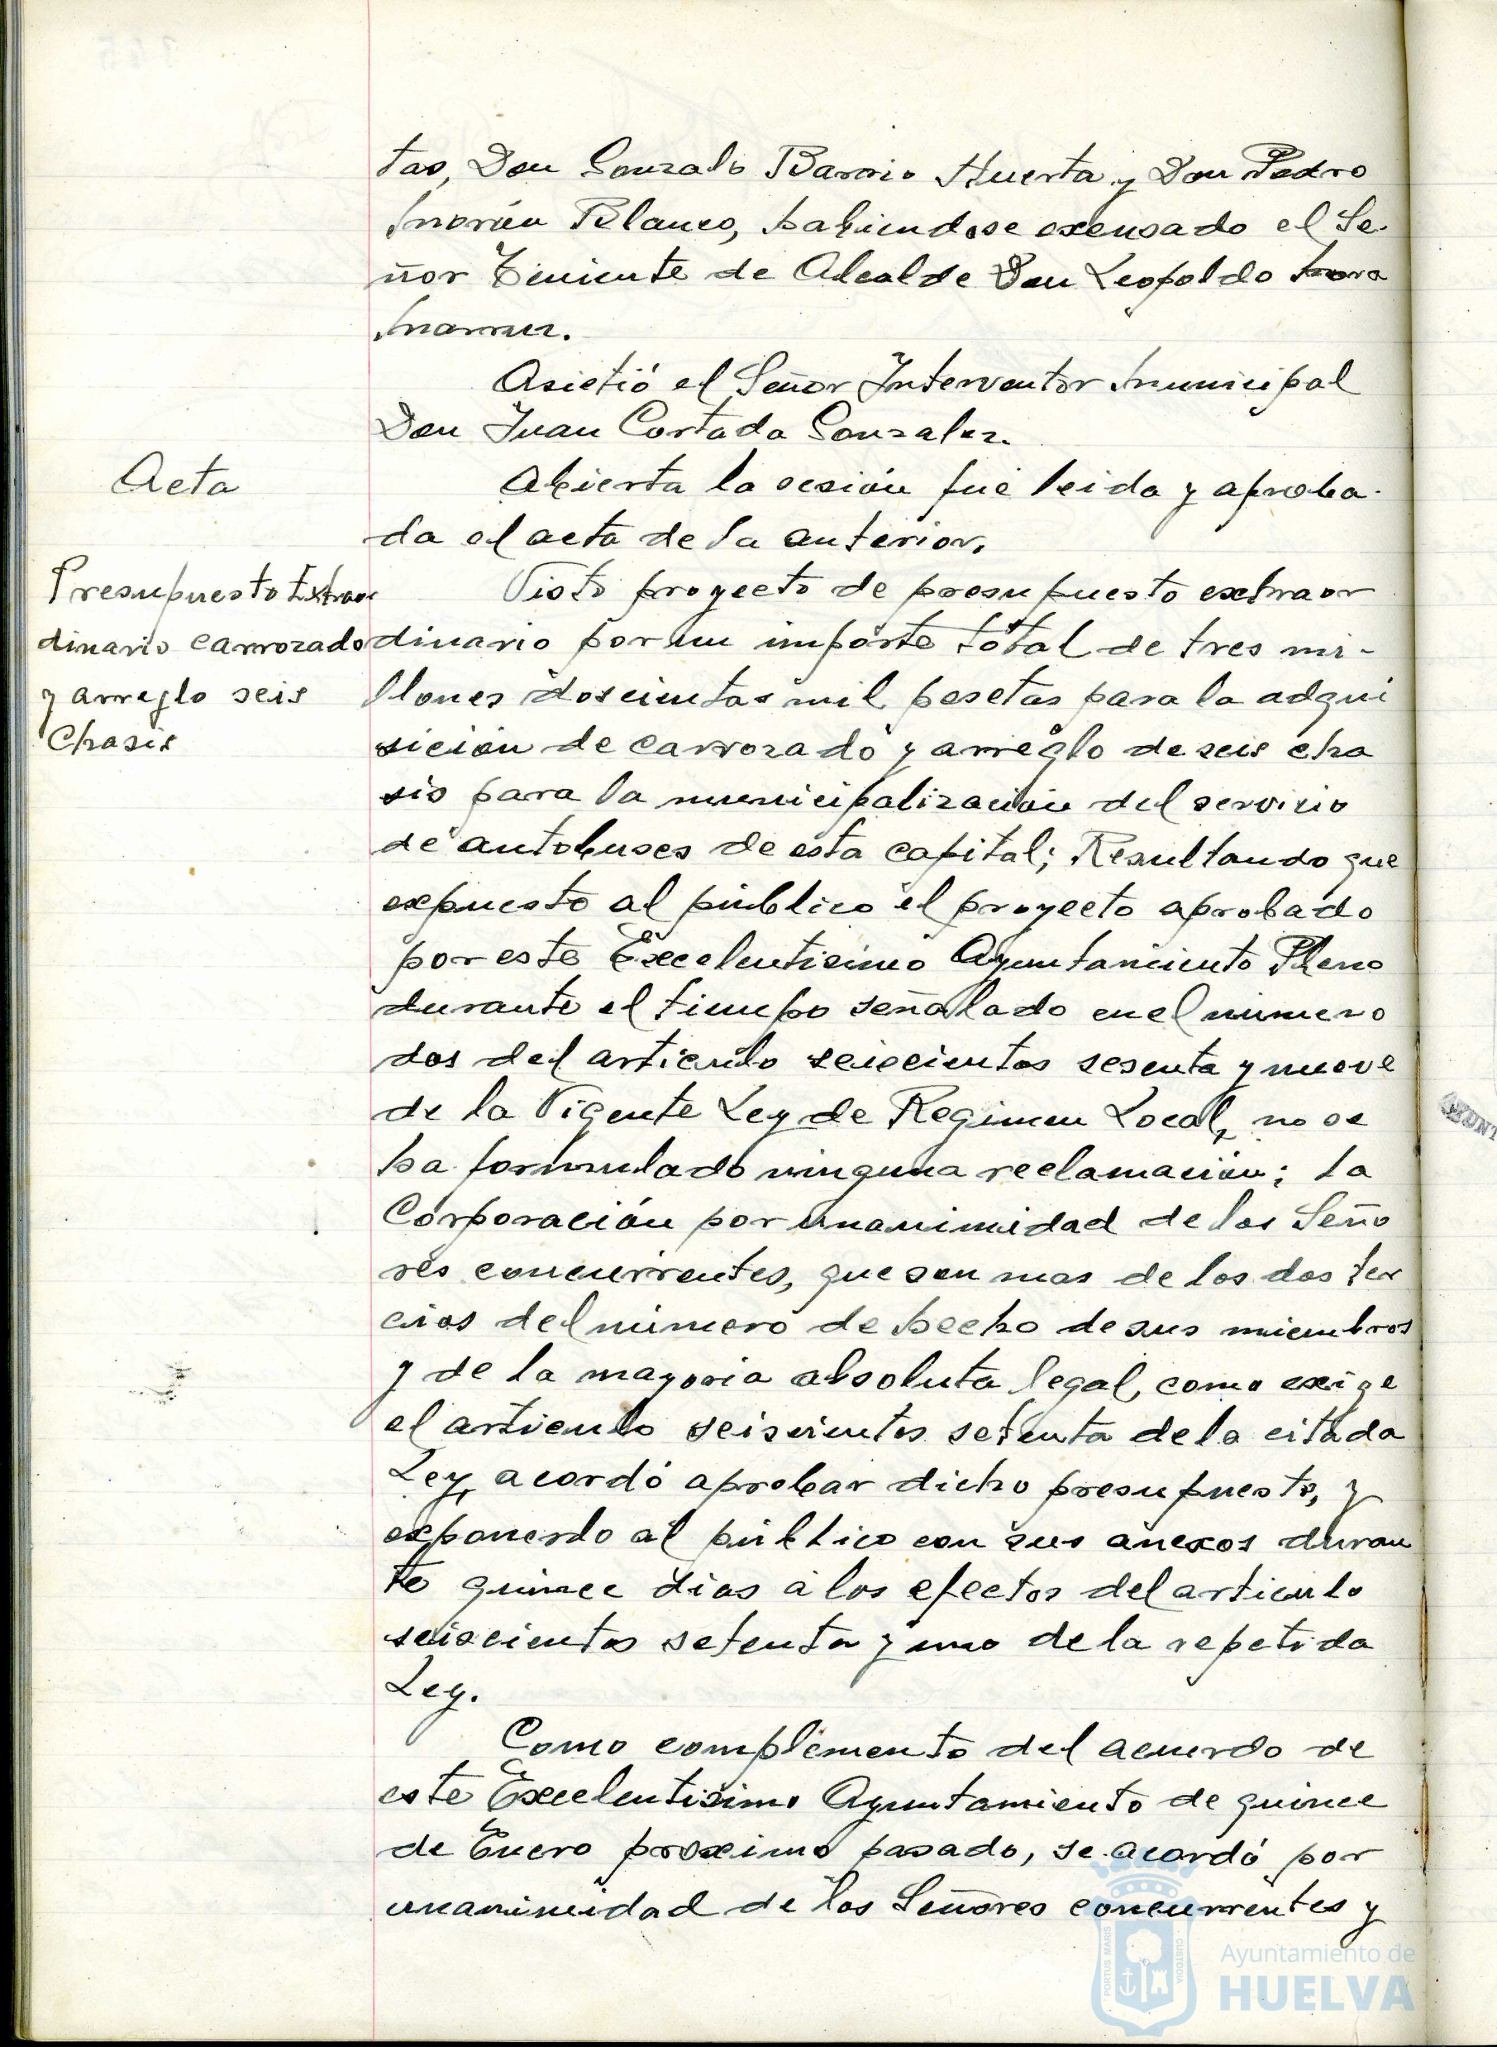 tas, Don Gonzalo Barrio Huerta y Don Pedro
Morán Blanco, habiendose excusado el Se-
ñor Teniente de Alcalde Don Leopoldo Mora
Acta
Asistió el Señor Interventor Municipal
Don Juan Cortada Gonzalez.
Abierta la sesión fué leida y aproba-
da el acta de la anterior.
Presupuesto Extraor
dinario carrozado
y arreglo seis
Chasis
Visto proyecto de presupuesto extraor
dinario por un importe total de tres mi-
llones doscientas mil pesetas para la adqui
sición de carrozado y arreglo de seis cha
sis para la municipalización del servicio
de autobuses de esta capital; Resultando que
expuesto al público el proyecto aprobado
por este Excelentisimo Ayuntamiento Pleno
durante el tiempo señalado en el número
dos del articulo seiscientos sesenta y nueve
de la Vigente Ley de Regimen Local, no se
ha formulado ninguna reclamación; la
Corporación por unanimidad de los Seño
res concurrentes, que son mas de los dos ter
cios del número de hecho de sus miembros
y de la mayoria absoluta legal, como exige
el articulo seiscientos setenta de la citada
Ley, acordó aprobar dicho presupuesto, y
exponerlo al público con sus anexos duran
te quince dias a los efectos del articulo
seiscientos setenta y uno de la repetida
Ley.
Como complemento del acuerdo de
este Excelentisimo Ayuntamiento de quince
de Enero proximo pasado, se acordó por
unanimidad de los Señores concurrentes y
PORTUS MARIS
CUSTODIA
Ayuntamiento de
HUELVA